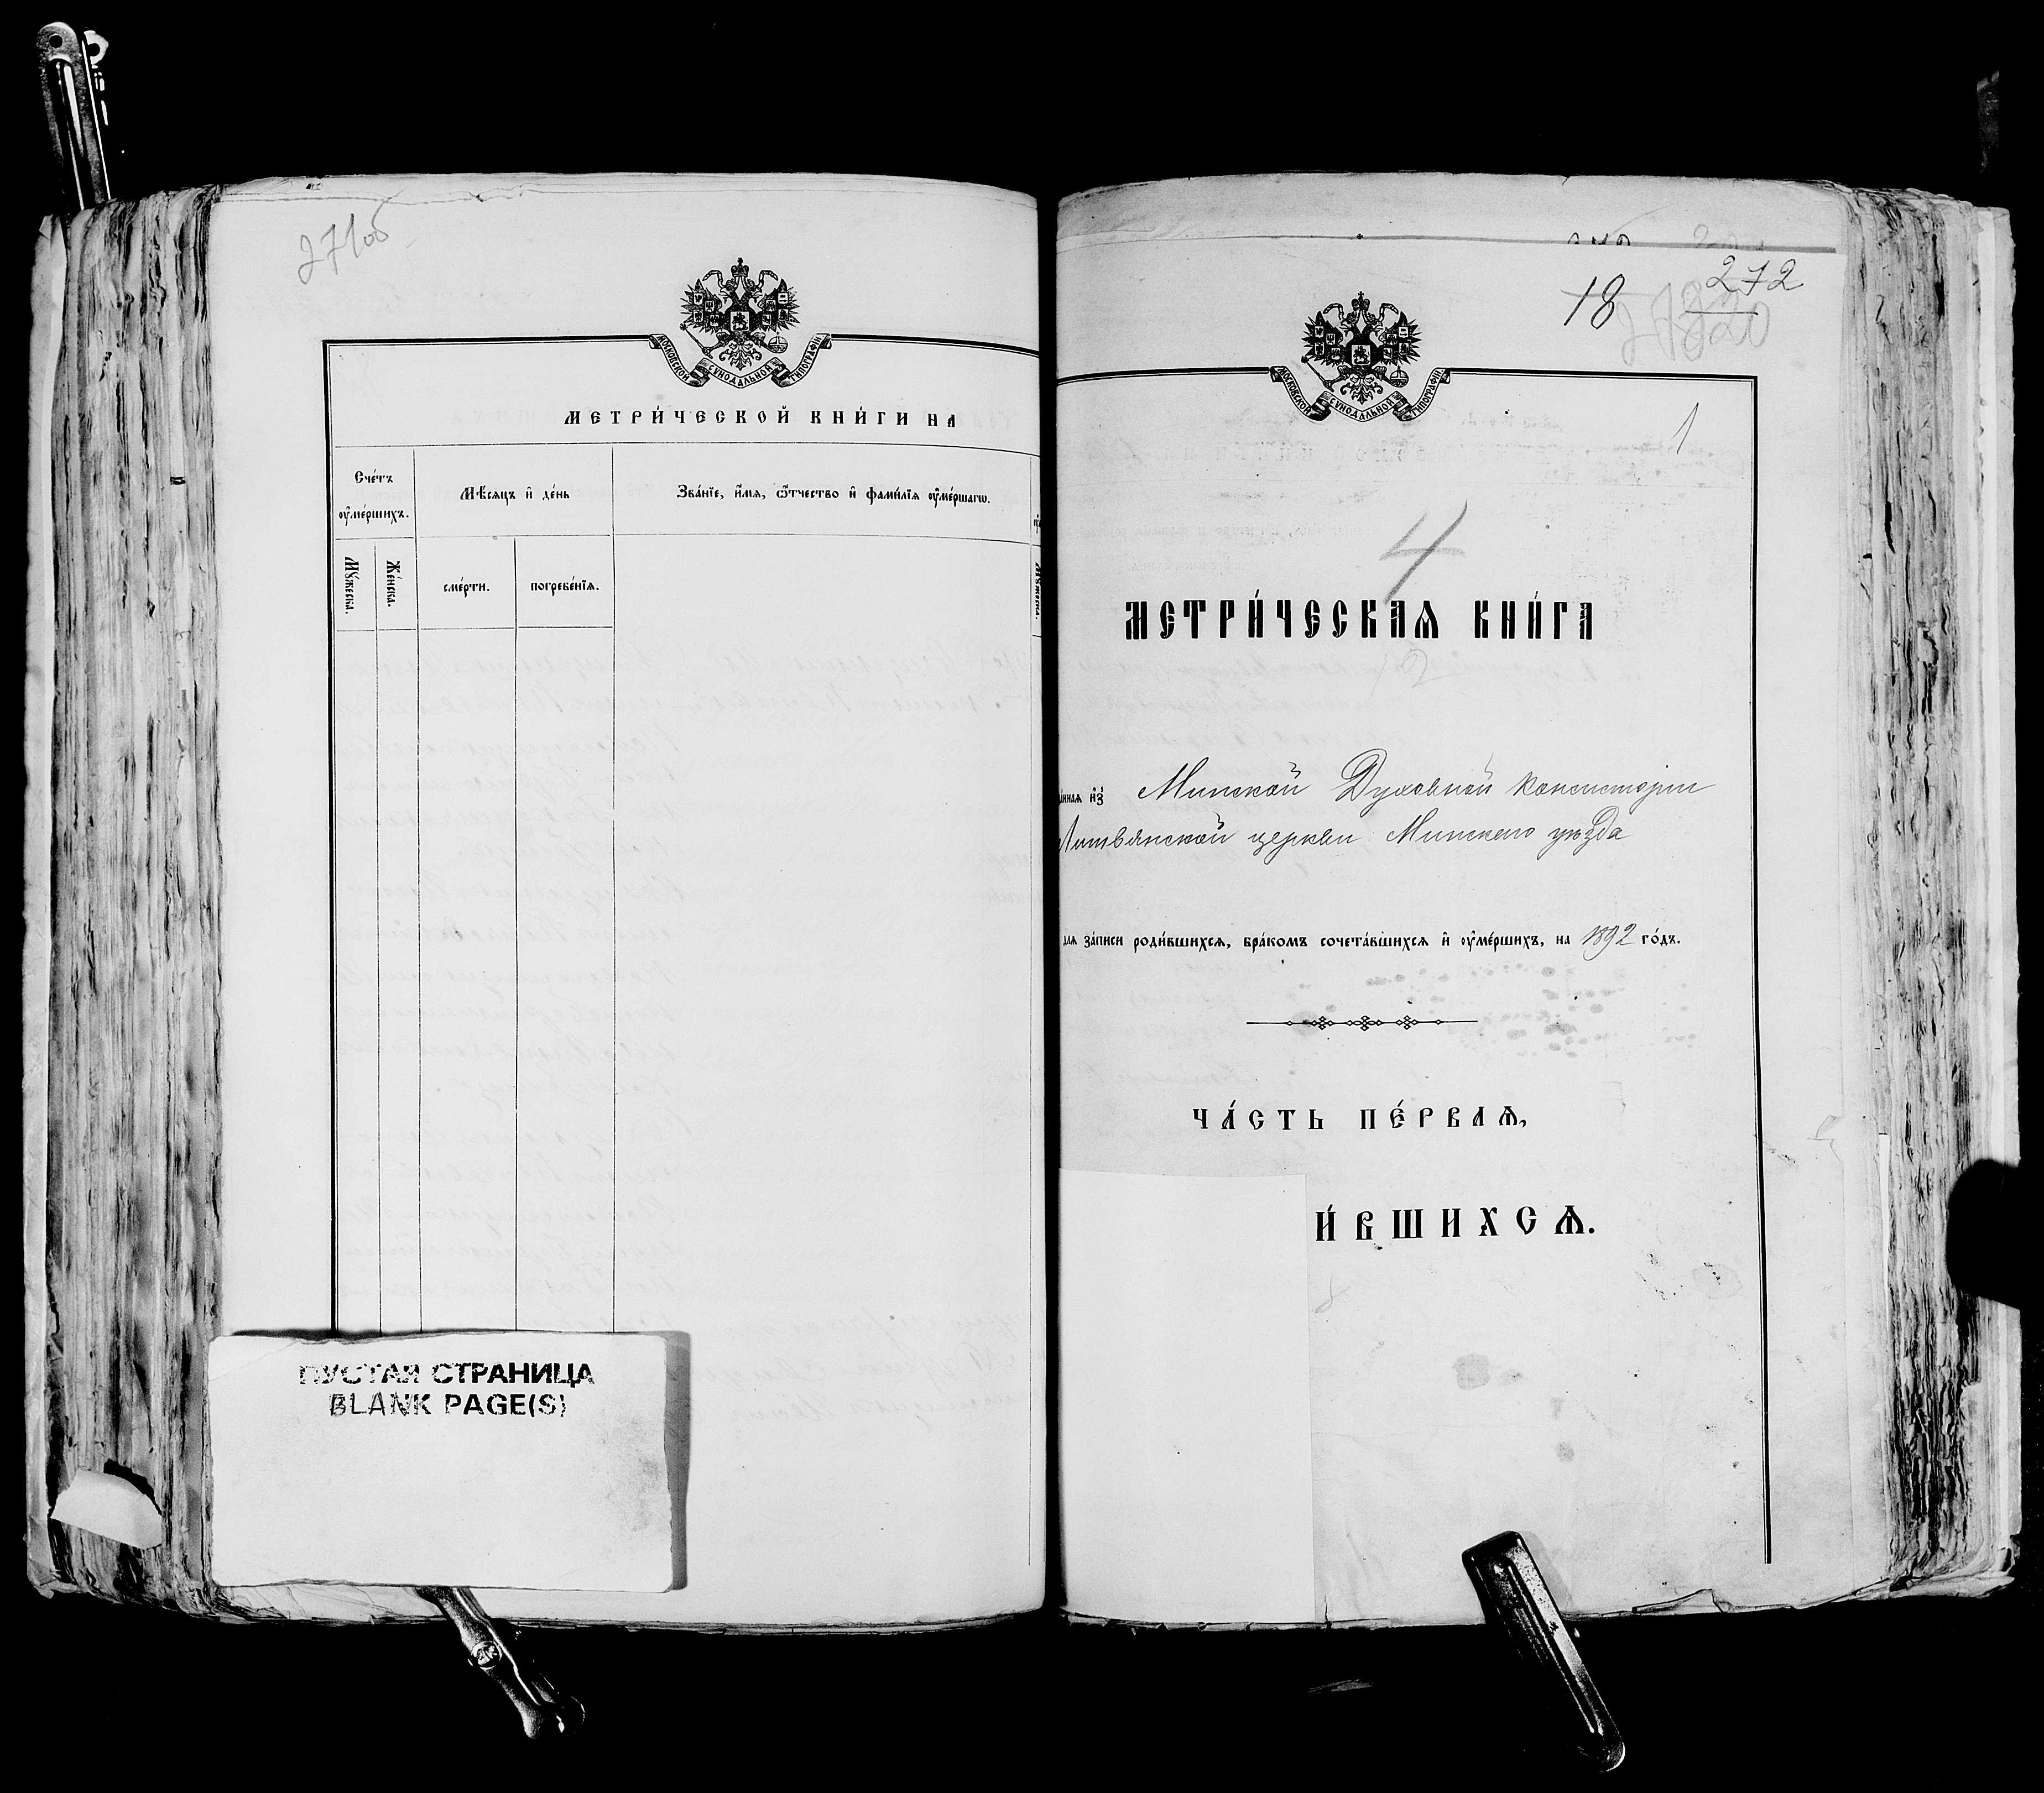 271 об
МОСКОВСКОЙ СѴНОДАЛЬНОЙ ТИПОГРАФІИ
МЕТРИ́ЧЕСКОЙ КНИ́ГИ НА
Сче́тъ ᲂу҆ме́ршихъ.
Мѣ́сяцъ и҆ де́нь
Зва́нїе, и҆́мѧ, ѻ҆́тчество и҆ фами́лїѧ ᲂу҆ме́ршагѡ.
Мꙋ́жеска.
Же́нска.
сме́рти.
погребе́нїѧ.
ПУСТАЯ СТРАНИЦА
BLANK PAGE(S)
18
272
МОСКОВСКОЙ СѴНОДАЛЬНОЙ ТИПОГРАФІИ
1
4
МЕТРИ́ЧЕСКАѦ КНИ́ГА
а́ннаѧ и҆з̾ Минской Духовной Консисторіи
Литвянской церкви Минскаго уѣзда
для за́писи роди́вшихсѧ, бра́комъ сочета́вшихсѧ и҆ ᲂу҆ме́ршихъ, на 1892 го́дъ.
ЧА́СТЬ ПЕ́РВАѦ,
И́ВШИХСѦ.